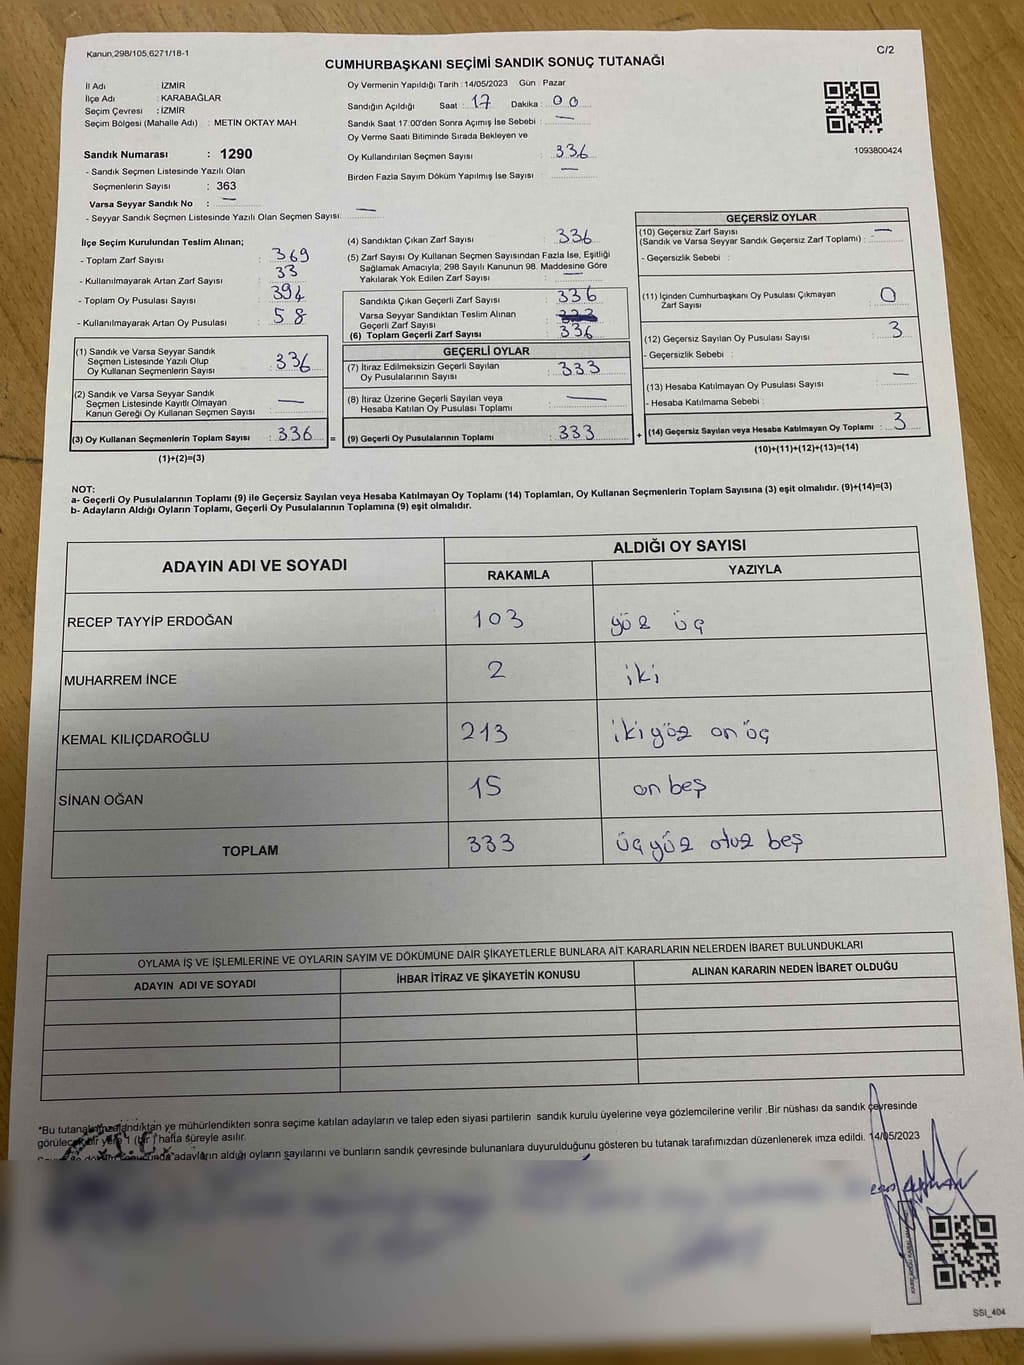 Kanun,298/105,6271/18-1
C/2
CUMHURBAŞKANI SEÇİMİ SANDIK SONUÇ TUTANAĞI
İl Adı : İZMİR
İlçe Adı : KARABAĞLAR
Seçim Çevresi : İZMİR
Seçim Bölgesi (Mahalle Adı) : METİN OKTAY MAH.
Sandık Numarası : 1290
- Sandık Seçmen Listesinde Yazılı Olan
Seçmenlerin Sayısı : 363
Varsa Seyyar Sandık No : —
- Seyyar Sandık Seçmen Listesinde Yazılı Olan Seçmen Sayısı: —
Oy Vermenin Yapıldığı Tarih : 14/05/2023 Gün : Pazar
Sandığın Açıldığı Saat : 17 Dakika : 00
Sandık Saat 17.00'den Sonra Açımış İse Sebebi : —
Oy Verme Saati Bitiminde Sırada Bekleyen ve
Oy Kullandırılan Seçmen Sayısı : 336
Birden Fazla Sayım Döküm Yapılmış İse Sayısı : —
1093800424
İlçe Seçim Kurulundan Teslim Alınan;
- Toplam Zarf Sayısı : 369
- Kullanılmayarak Artan Zarf Sayısı : 33
- Toplam Oy Pusulası Sayısı : 394
- Kullanılmayarak Artan Oy Pusulası : 58
(1) Sandık ve Varsa Seyyar Sandık
Seçmen Listesinde Yazılı Olup
Oy Kullanan Seçmenlerin Sayısı : 336
(2) Sandık ve Varsa Seyyar Sandık
Seçmen Listesinde Kayıtlı Olmayan
Kanun Gereği Oy Kullanan Seçmen Sayısı : —
(3) Oy Kullanan Seçmenlerin Toplam Sayısı : 336
(1)+(2)=(3)
=
(4) Sandıktan Çıkan Zarf Sayısı : 336
(5) Zarf Sayısı Oy Kullanan Seçmen Sayısından Fazla İse, Eşitliği
Sağlamak Amacıyla; 298 Sayılı Kanunun 98. Maddesine Göre
Yakılarak Yok Edilen Zarf Sayısı : —
Sandıkta Çıkan Geçerli Zarf Sayısı : 336
Varsa Seyyar Sandıktan Teslim Alınan
Geçerli Zarf Sayısı : 333
(6) Toplam Geçerli Zarf Sayısı : 336
GEÇERLİ OYLAR
(7) İtiraz Edilmeksizin Geçerli Sayılan
Oy Pusulalarının Sayısı : 333
(8) İtiraz Üzerine Geçerli Sayılan veya
Hesaba Katılan Oy Pusulası Toplamı : —
(9) Geçerli Oy Pusulalarının Toplamı : 333
+
GEÇERSİZ OYLAR
(10) Geçersiz Zarf Sayısı
(Sandık ve Varsa Seyyar Sandık Geçersiz Zarf Toplamı) : —
- Geçersizlik Sebebi :
(11) İçinden Cumhurbaşkanı Oy Pusulası Çıkmayan
Zarf Sayısı : 0
(12) Geçersiz Sayılan Oy Pusulası Sayısı : 3
- Geçersizlik Sebebi :
(13) Hesaba Katılmayan Oy Pusulası Sayısı : —
- Hesaba Katılmama Sebebi :
(14) Geçersiz Sayılan veya Hesaba Katılmayan Oy Toplamı : 3
(10)+(11)+(12)+(13)=(14)
NOT:
a- Geçerli Oy Pusulalarının Toplamı (9) ile Geçersiz Sayılan veya Hesaba Katılmayan Oy Toplamı (14) Toplamları, Oy Kullanan Seçmenlerin Toplam Sayısına (3) eşit olmalıdır. (9)+(14)=(3)
b- Adayların Aldığı Oyların Toplamı, Geçerli Oy Pusulalarının Toplamına (9) eşit olmalıdır.
ADAYIN ADI VE SOYADI
ALDIĞI OY SAYISI
RAKAMLA YAZIYLA
RECEP TAYYİP ERDOĞAN 103 yüz üç
MUHARREM İNCE 2 iki
KEMAL KILIÇDAROĞLU 213 ikiyüz on üç
SİNAN OĞAN 15 on beş
TOPLAM 333 üçyüz otuz beş
OYLAMA İŞ VE İŞLEMLERİNE VE OYLARIN SAYIM VE DÖKÜMÜNE DAİR ŞİKAYETLERLE BUNLARA AİT KARARLARIN NELERDEN İBARET BULUNDUKLARI
ADAYIN ADI VE SOYADI İHBAR İTİRAZ VE ŞİKAYETİN KONUSU ALINAN KARARIN NEDEN İBARET OLDUĞU
*Bu tutanak imzalandıktan ve mühürlendikten sonra seçime katılan adayların ve talep eden siyasi partilerin sandık kurulu üyelerine veya gözlemcilerine verilir .Bir nüshası da sandık çevresinde
görülecek bir yere 1 (bir ) hafta süreyle asılır.
T.C.
adayların aldığı oyların sayılarını ve bunların sandık çevresinde bulunanlara duyurulduğunu gösteren bu tutanak tarafımızdan düzenlenerek imza edildi. 14/05/2023
SSI_404